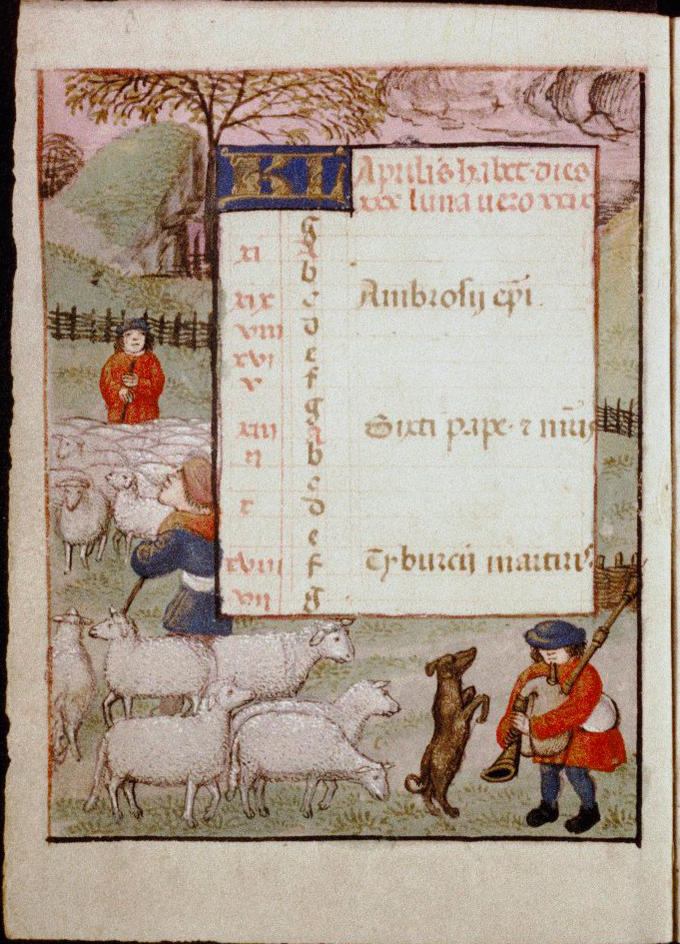 KL Aprilis habet dies
xxx luna vero xxix
g
xi A
b
xix c Ambrosij ep̄i
viii d
xvi e
v f
g
xiii A Sixti pape ⁊ m̄ris
ii b
c
x d
e
xviii f Tyburcij martiris
vii g